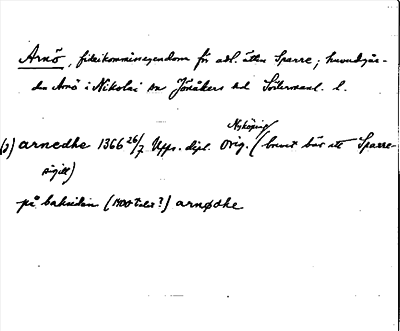 Arnö, fideikommissegendom för adl. ätten Sparre; huvudgår-
den Arnö i Nikolai sn Jönåkers hd Södermanl. l.
Nyköping
(j) arnedhe 1366 26/7 Upps. dipl. Orig. (brevet bär ett Sparre-
sigill)
på baksidan (1400-talet?) arnødhe